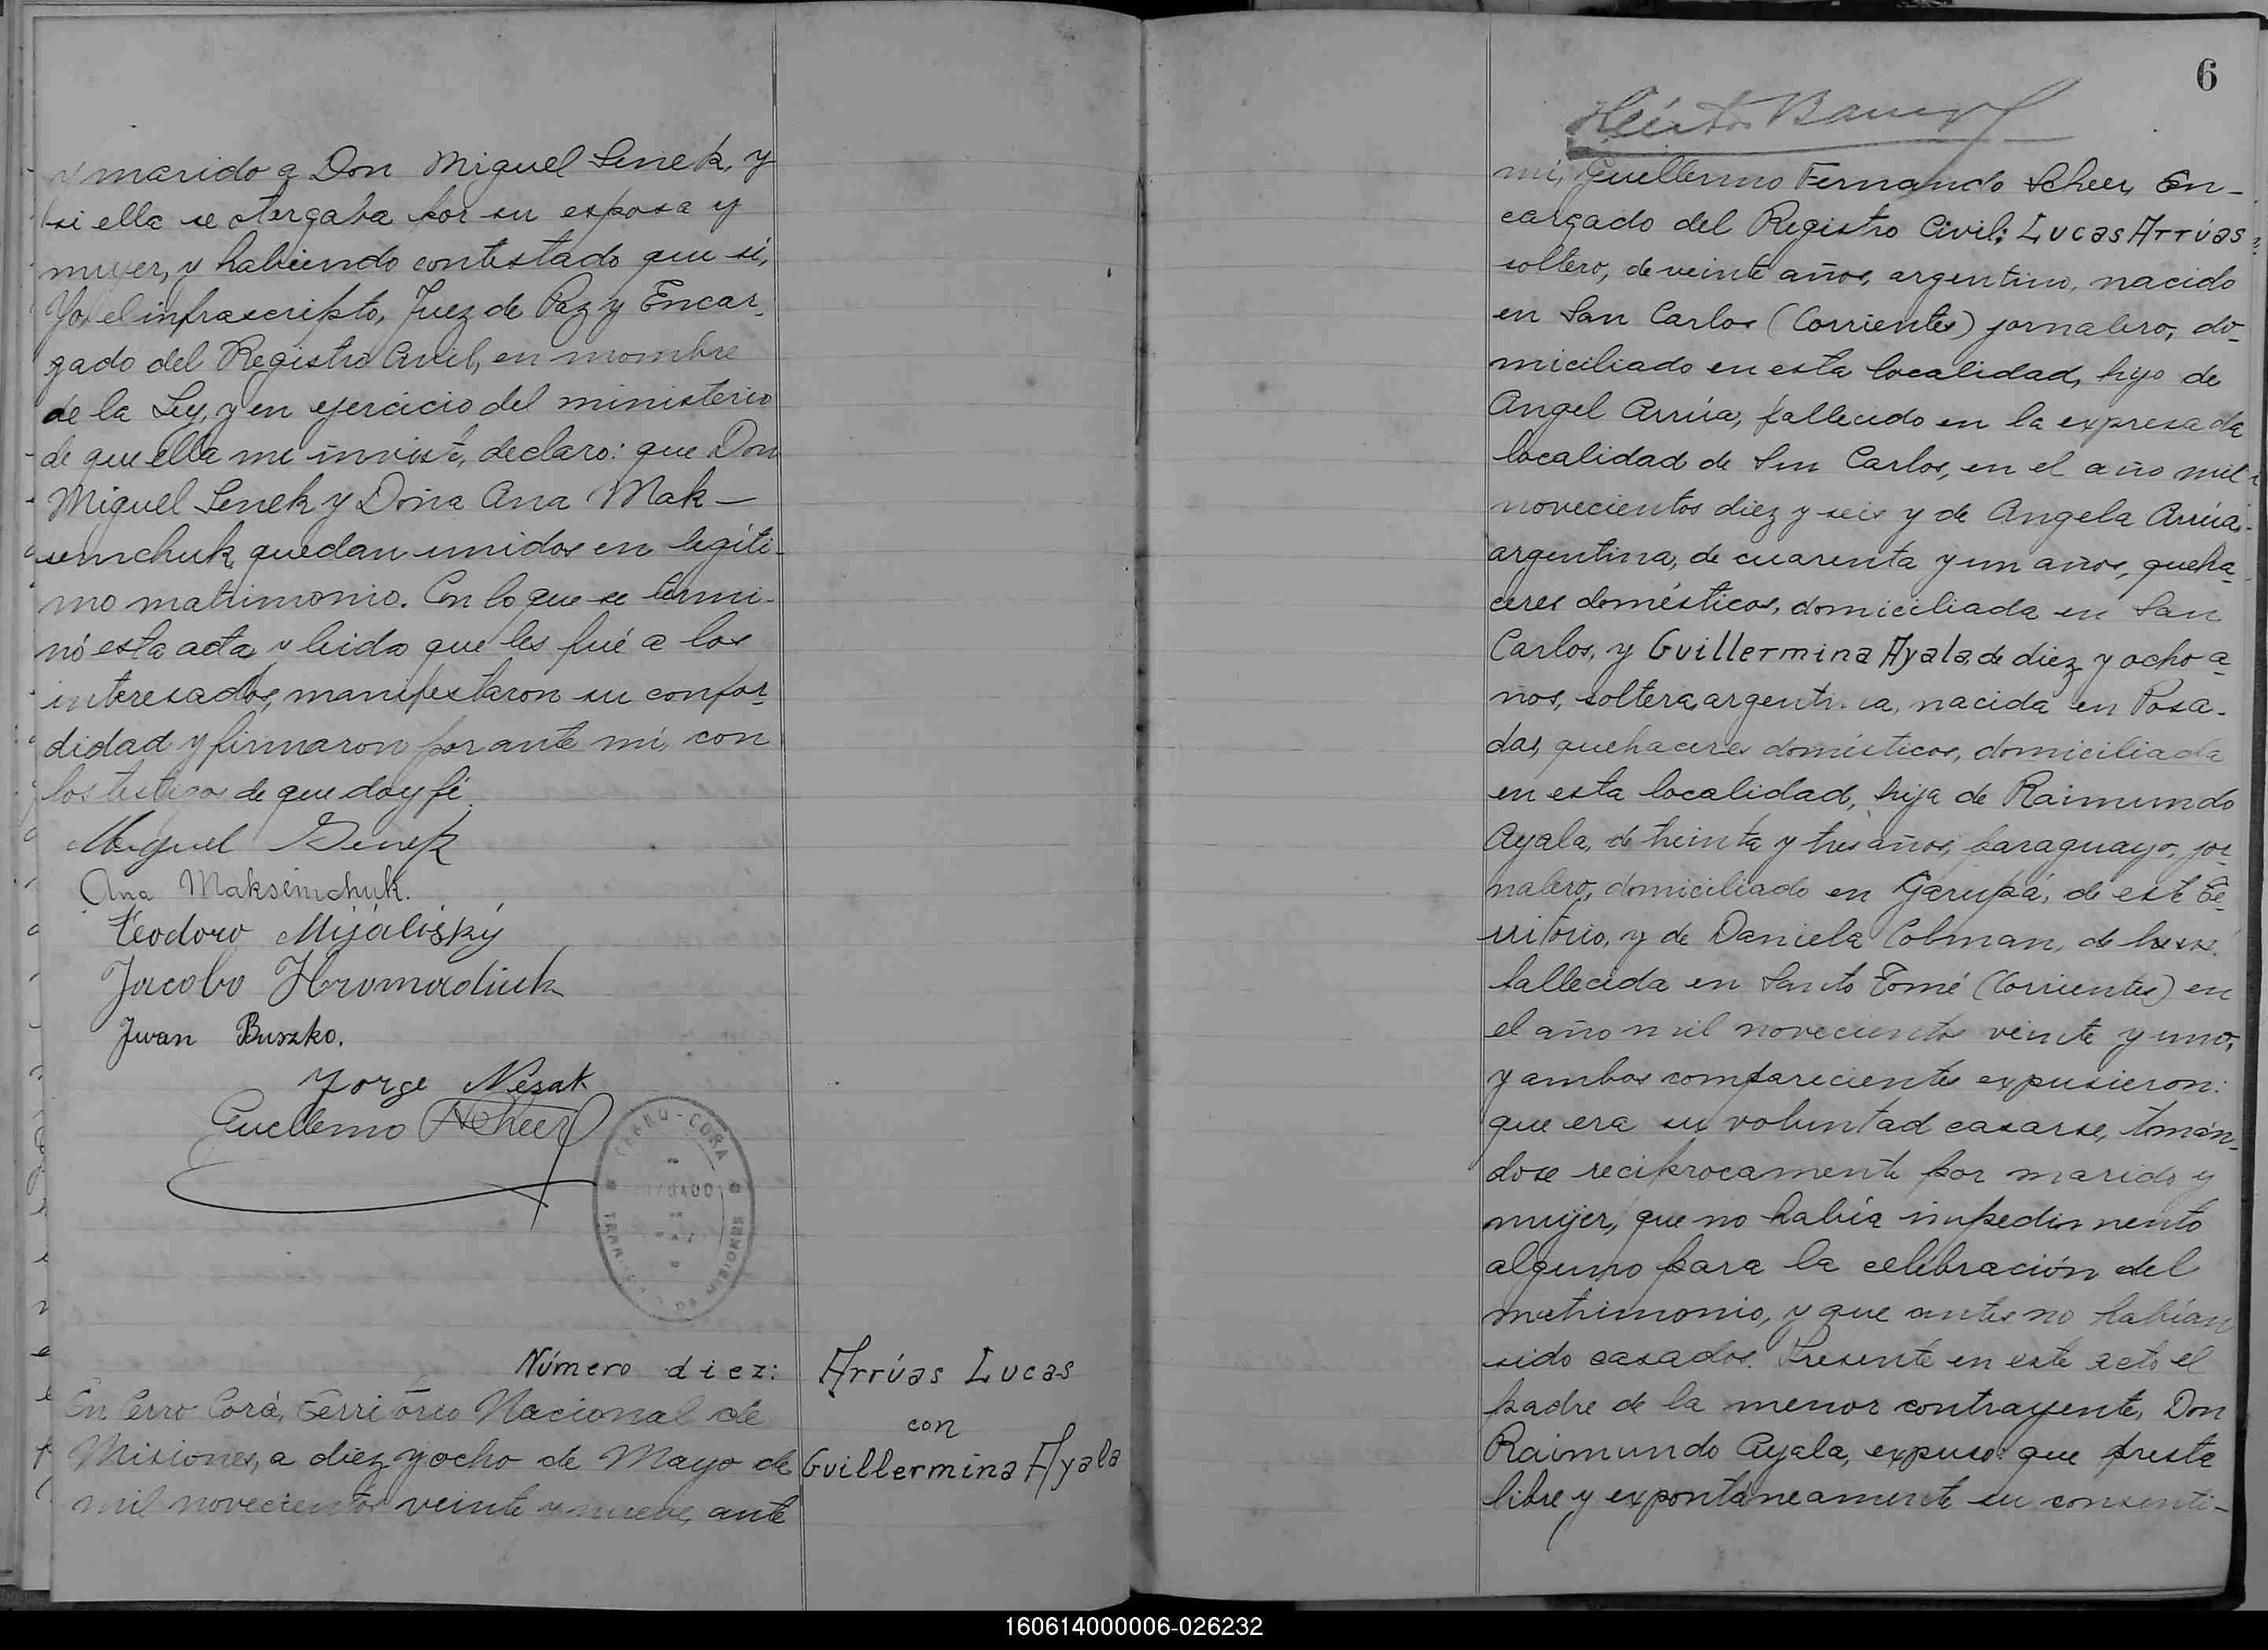 y marido a Don Miguel Senek, y
si ella se otorgaba por su esposa y
mujer, y habiendo contestado que sí,
Yo, el infrascripto, Juez de Paz y Encar-
gado del Registro Civil, en nombre
de la Ley, y en ejercicio del ministerio
de que ella me inviste, declaro: que Don
Miguel Senek y Doña Ana Mak-
semchuk quedan unidos en legíti-
mo matrimonio. Con lo que se termi-
nó esta acta, y leida que les fué a los
interesados, manifestaron su confor-
didad y firmaron por ante mi, con
los testigos de que doy fé
Miguel Senek
Ana Maksemchuk.
Teodoro Mijaliski
Jacobo Hromadiuk
Juan Buszko.
Jorge Nesak
Guillermo Scheer
CERRO-CORA
JUZGADO
Número diez:
En Cerro Corá, Territorio Nacional de
Misiones, a diez y ocho de Mayo de
mil novecientos veinte y nueve, ante
Arrúas Lucas
con
Guillermina Ayala
6
Héctor
mi, Guillermo Fernando Scheer, En-
cargado del Registro Civil: Lucas Arrúas
soltero, de veinte años, argentino, nacido
en San Carlos (Corrientes) jornalero, do-
miciliado en esta localidad, hijo de
Angel Arrúa, fallecido en la expresada
localidad de San Carlos, en el año mil
novecientos diez y seis y de Angela Arrúas
argentina, de cuarenta y un años, queha-
ceres domésticos, domiciliada en San
Carlos, y Guillermina Ayala, de diez y ocho a-
ños, soltera, argentina, nacida en Posa-
das, quehaceres domésticos, domiciliada
en esta localidad, hija de Raimundo
Ayala, de treinta y tres años, paraguayo, jor-
nalero, domiciliado en Garupá, de este Te-
rritorio, y de Daniela Colman, de
fallecida en Santo Tomé (Corrientes) en
el año mil novecientos veinte y uno,
y ambos comparecientes expusieron:
que era su voluntad casarse, tomán-
dose recíprocamente por marido y
mujer, que no había impedimento
alguno para la celebración del
matrimonio, y que antes no habían
sido casados. Presente en este acto el
padre de la menor contrayente, Don
Raimundo Ayala, expuso: que presta
libre y expontáneamente su consenti-
160614000006-026232